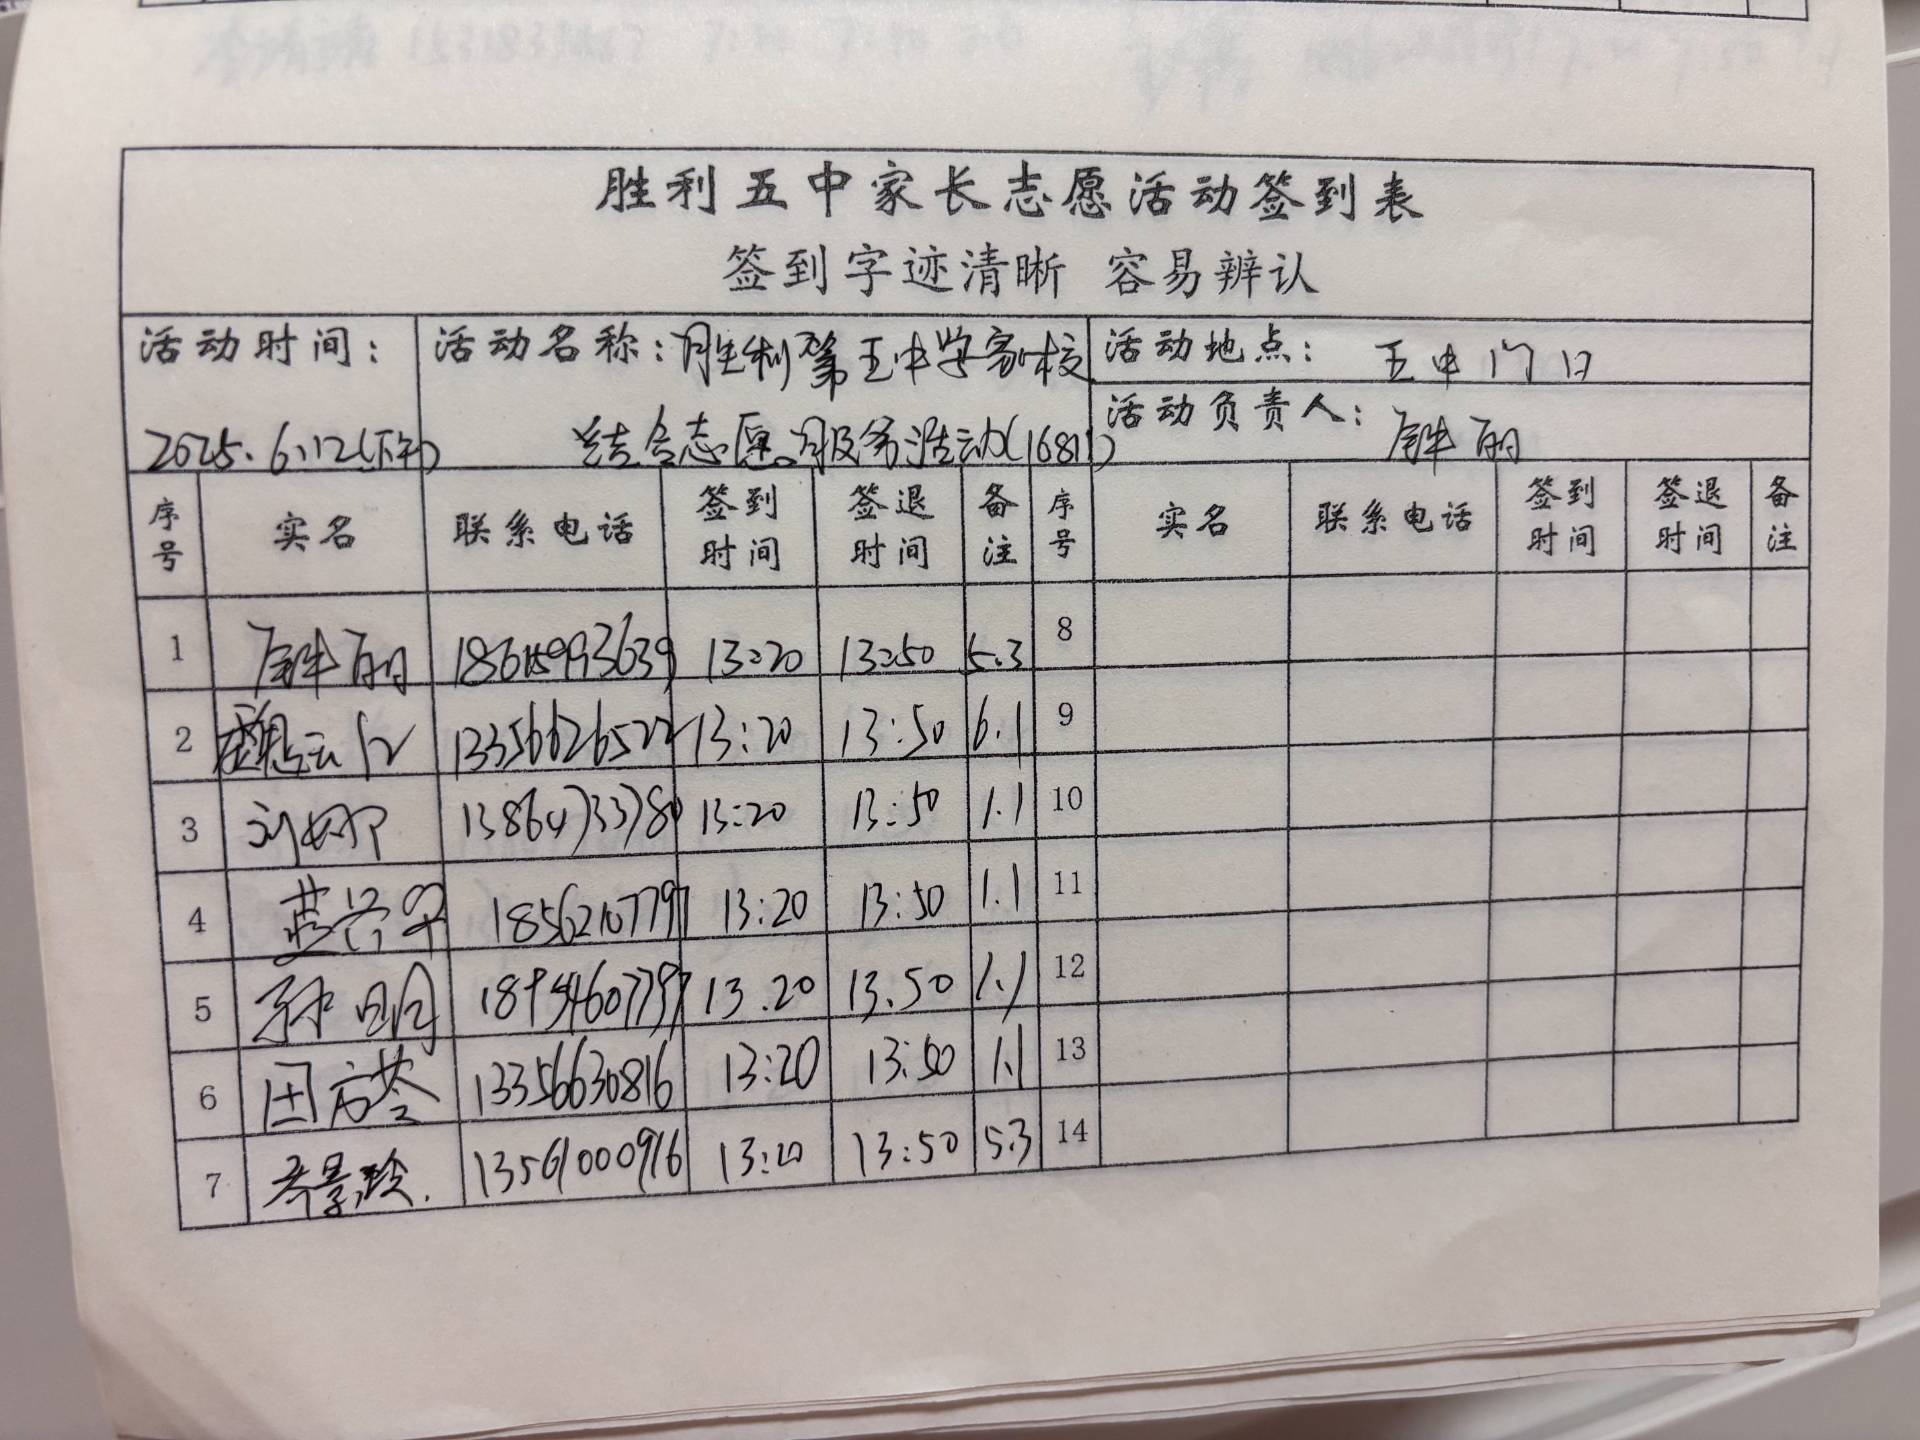 胜利五中家长志愿活动签到表
签到字迹清晰 容易辨认
活动时间： 活动名称：胜利第五中学家校 活动地点： 五中门口
2025.6.12(下午) 结合志愿服务活动(1681) 活动负责人： 丽
序号 实名 联系电话 签到时间 签退时间 备注 序号 实名 联系电话 签到时间 签退时间 备注
1 丽 18615993639 13:20 13:50 5.3 8
2 13356626522 13:20 13:50 6.1 9
3 刘娜 13864733780 13:20 13:50 1.1 10
4 18562107797 13:20 13:50 1.1 11
5 孙明 18954607797 13.20 13.50 1.1 12
6 田方荟 13356630816 13:20 13:50 1.1 13
7 景玲. 13561000916 13:20 13:50 5.3 14